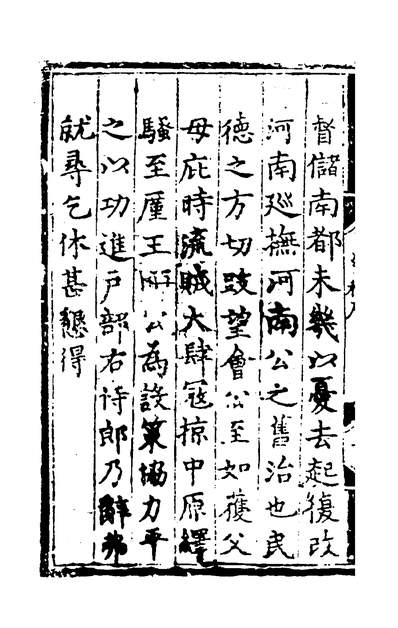 督儲南都未幾以憂去起復改
河南廵撫河南公之舊治也民
德之方切跂望會公至如獲父
母庇時流賊大肆寇掠中原繹
騷至厪王師公為設策協力平
之以功進戶部右侍郎乃辭弗
就尋乞休甚懇得